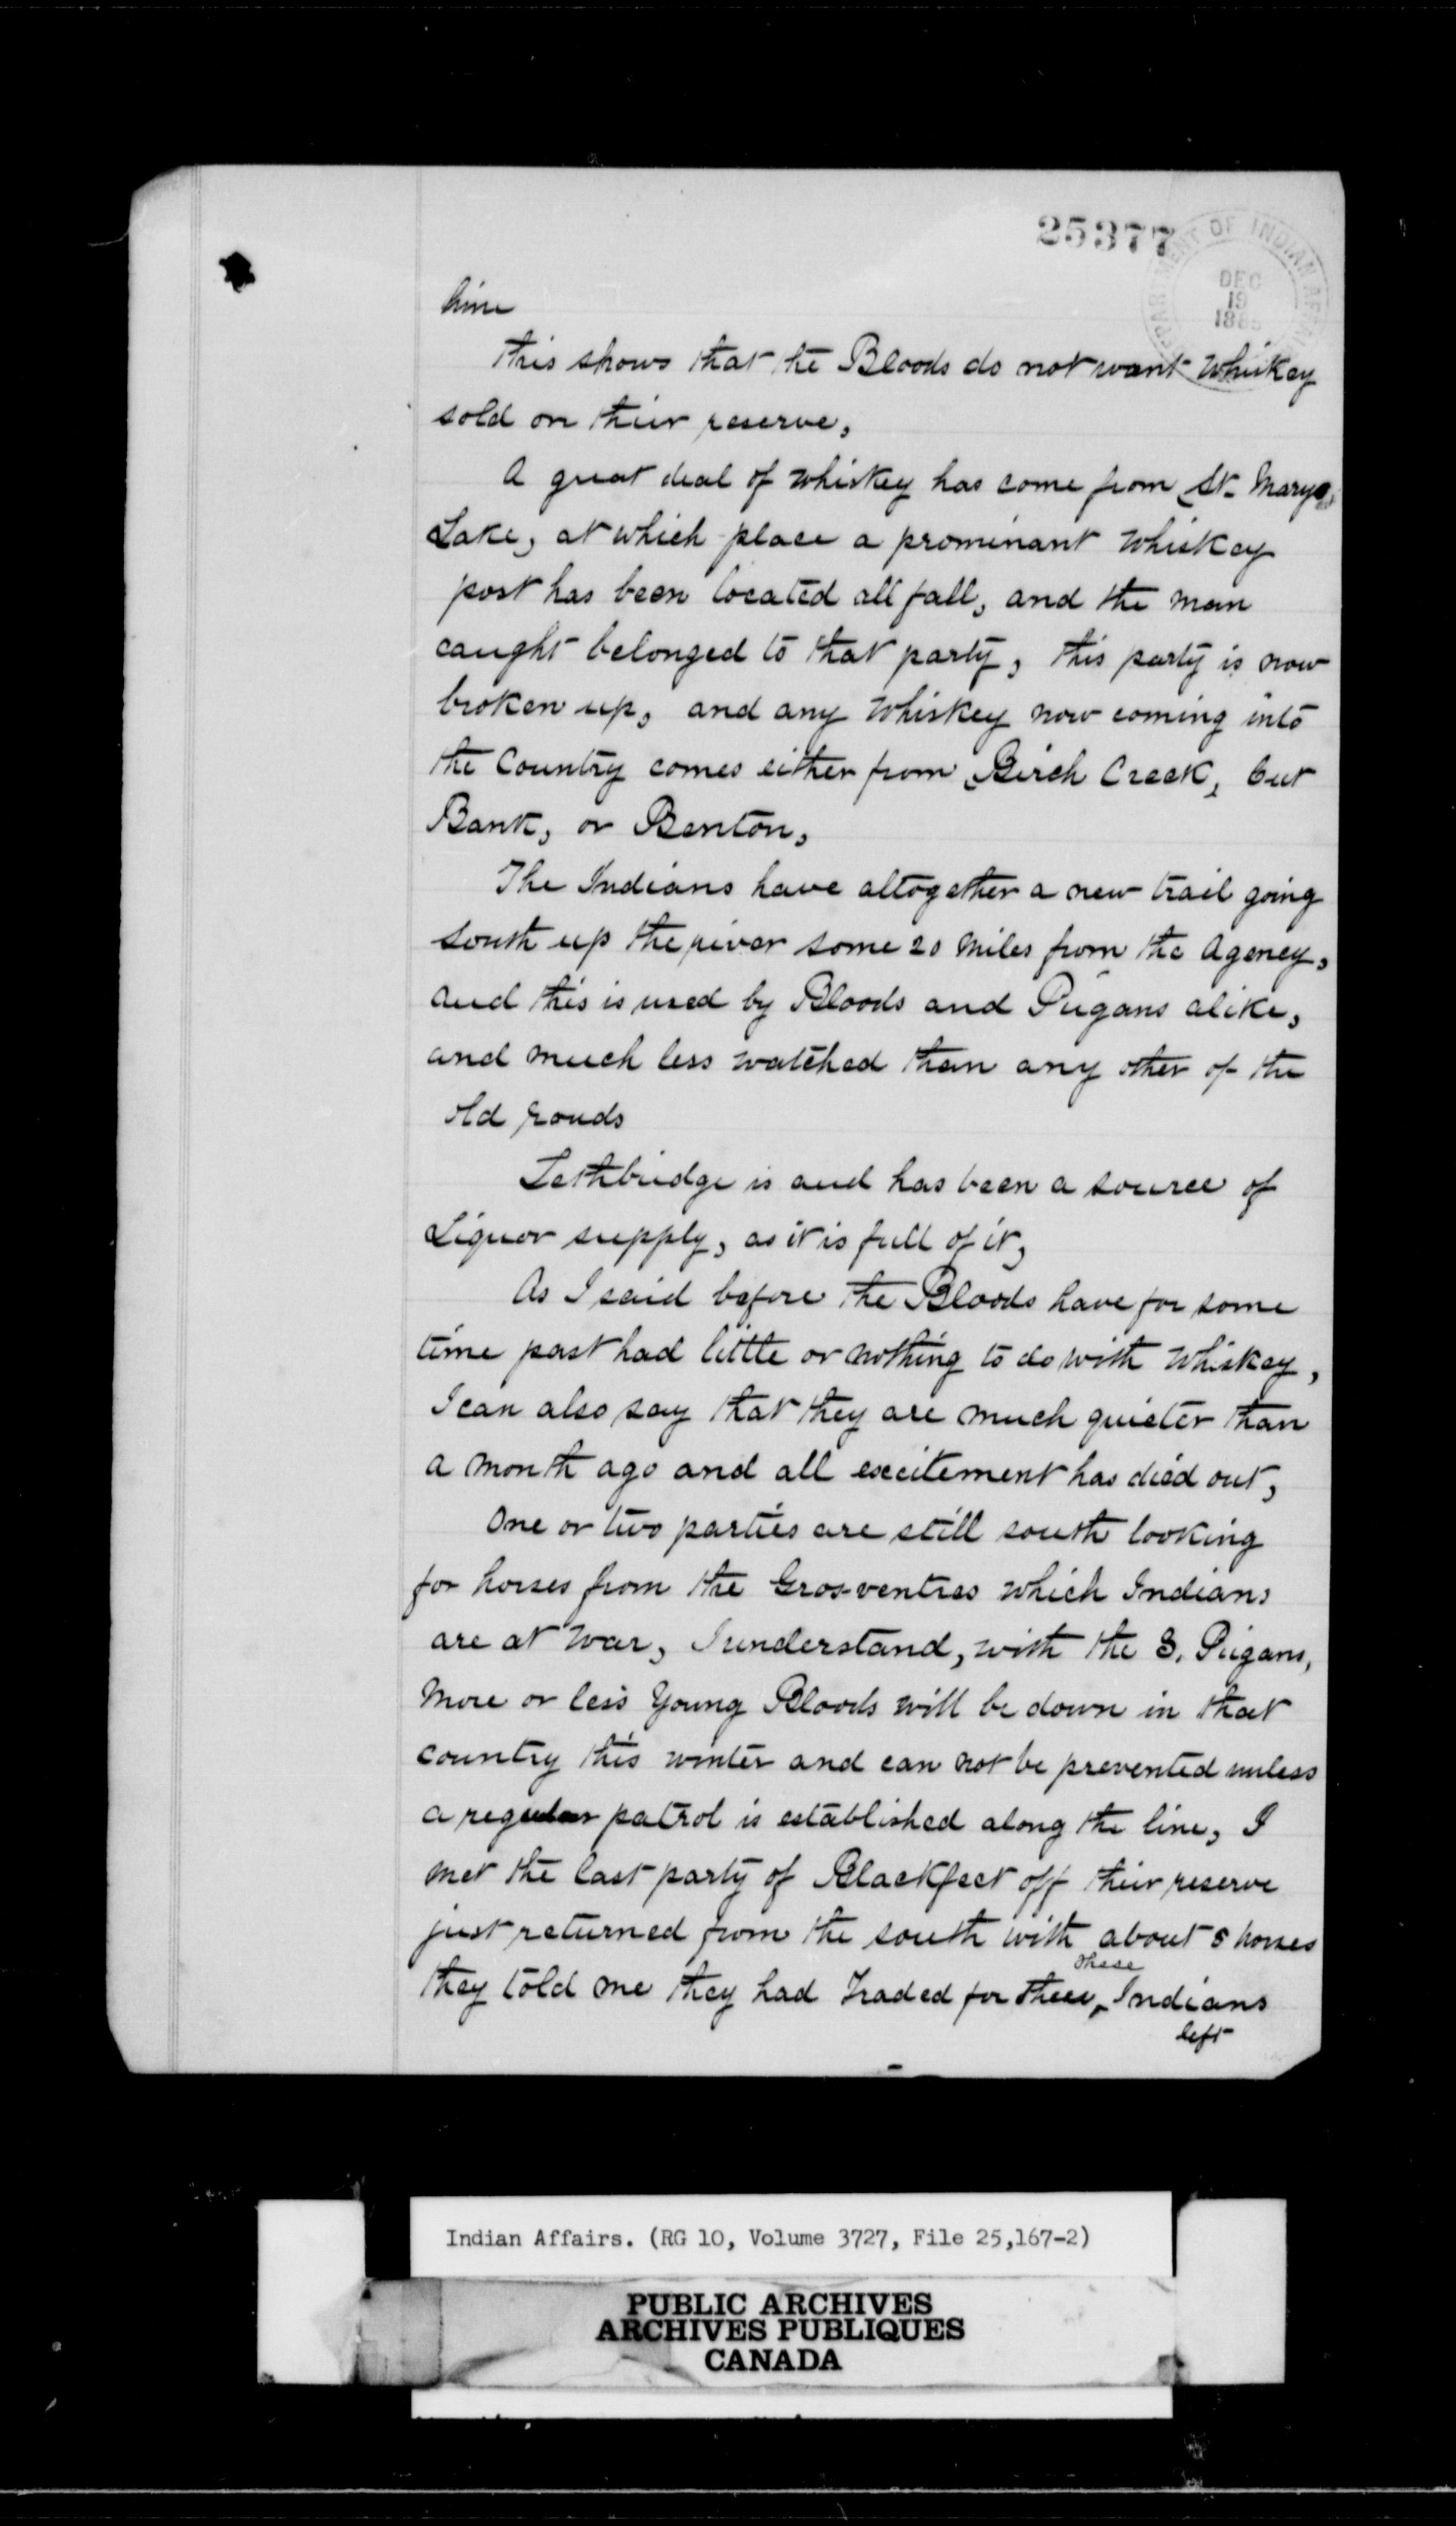 25377
DEPARTMENT OF INDIAN AFFAIRS
DEC
19
188
him
This shows that the Bloods do not want Whiskey
sold on thier reserve,
A great deal of whiskey has come from St. Marys,
Lake, at which place a prominant Whiskey
post has been located all fall, and the man
caught belonged to that party, this party is now
broken up, and any Whiskey now coming into
the Country comes either from Birch Creek, Cut
Bank, or Benton,
The Indians have altogether a new trail going
south up the river some 20 miles from the Agency,
and this is used by Bloods and Piegans alike,
and much less watched than any other of the
old roads
Lethbridge is and has been a source of
Liquor supply, as it is full of it,
As I said before the Bloods have for some
time past had little or nothing to do with Whiskey,
I can also say that they are much quieter than
a month ago and all excitement has died out,
One or two parties are still south looking
for horses from the Gros-ventres which Indians
are at war, I understand, with the S. Piegans,
More or less Young Bloods will be down in that
country this winter and can not be prevented unless
a regular patrol is established along the line, I
met the last party of Blackfeet off thier reserve
just returned from the south with about 8 horses
these
they told me they had Traded for Indians
left
Indian Affairs. (RG 10, Volume 3727, File 25,167-2)
PUBLIC ARCHIVES
ARCHIVES PUBLIQUES
CANADA